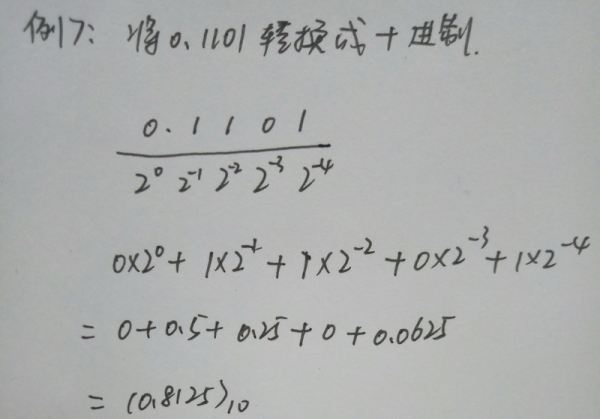 例7: 将0.1101转换成十进制.
0. 1 1 0 1
2⁰ 2⁻¹ 2⁻² 2⁻³ 2⁻⁴
0×2⁰ + 1×2⁻¹ + 1×2⁻² + 0×2⁻³ + 1×2⁻⁴
= 0+0.5+0.25+0+0.0625
= (0.8125)₁₀